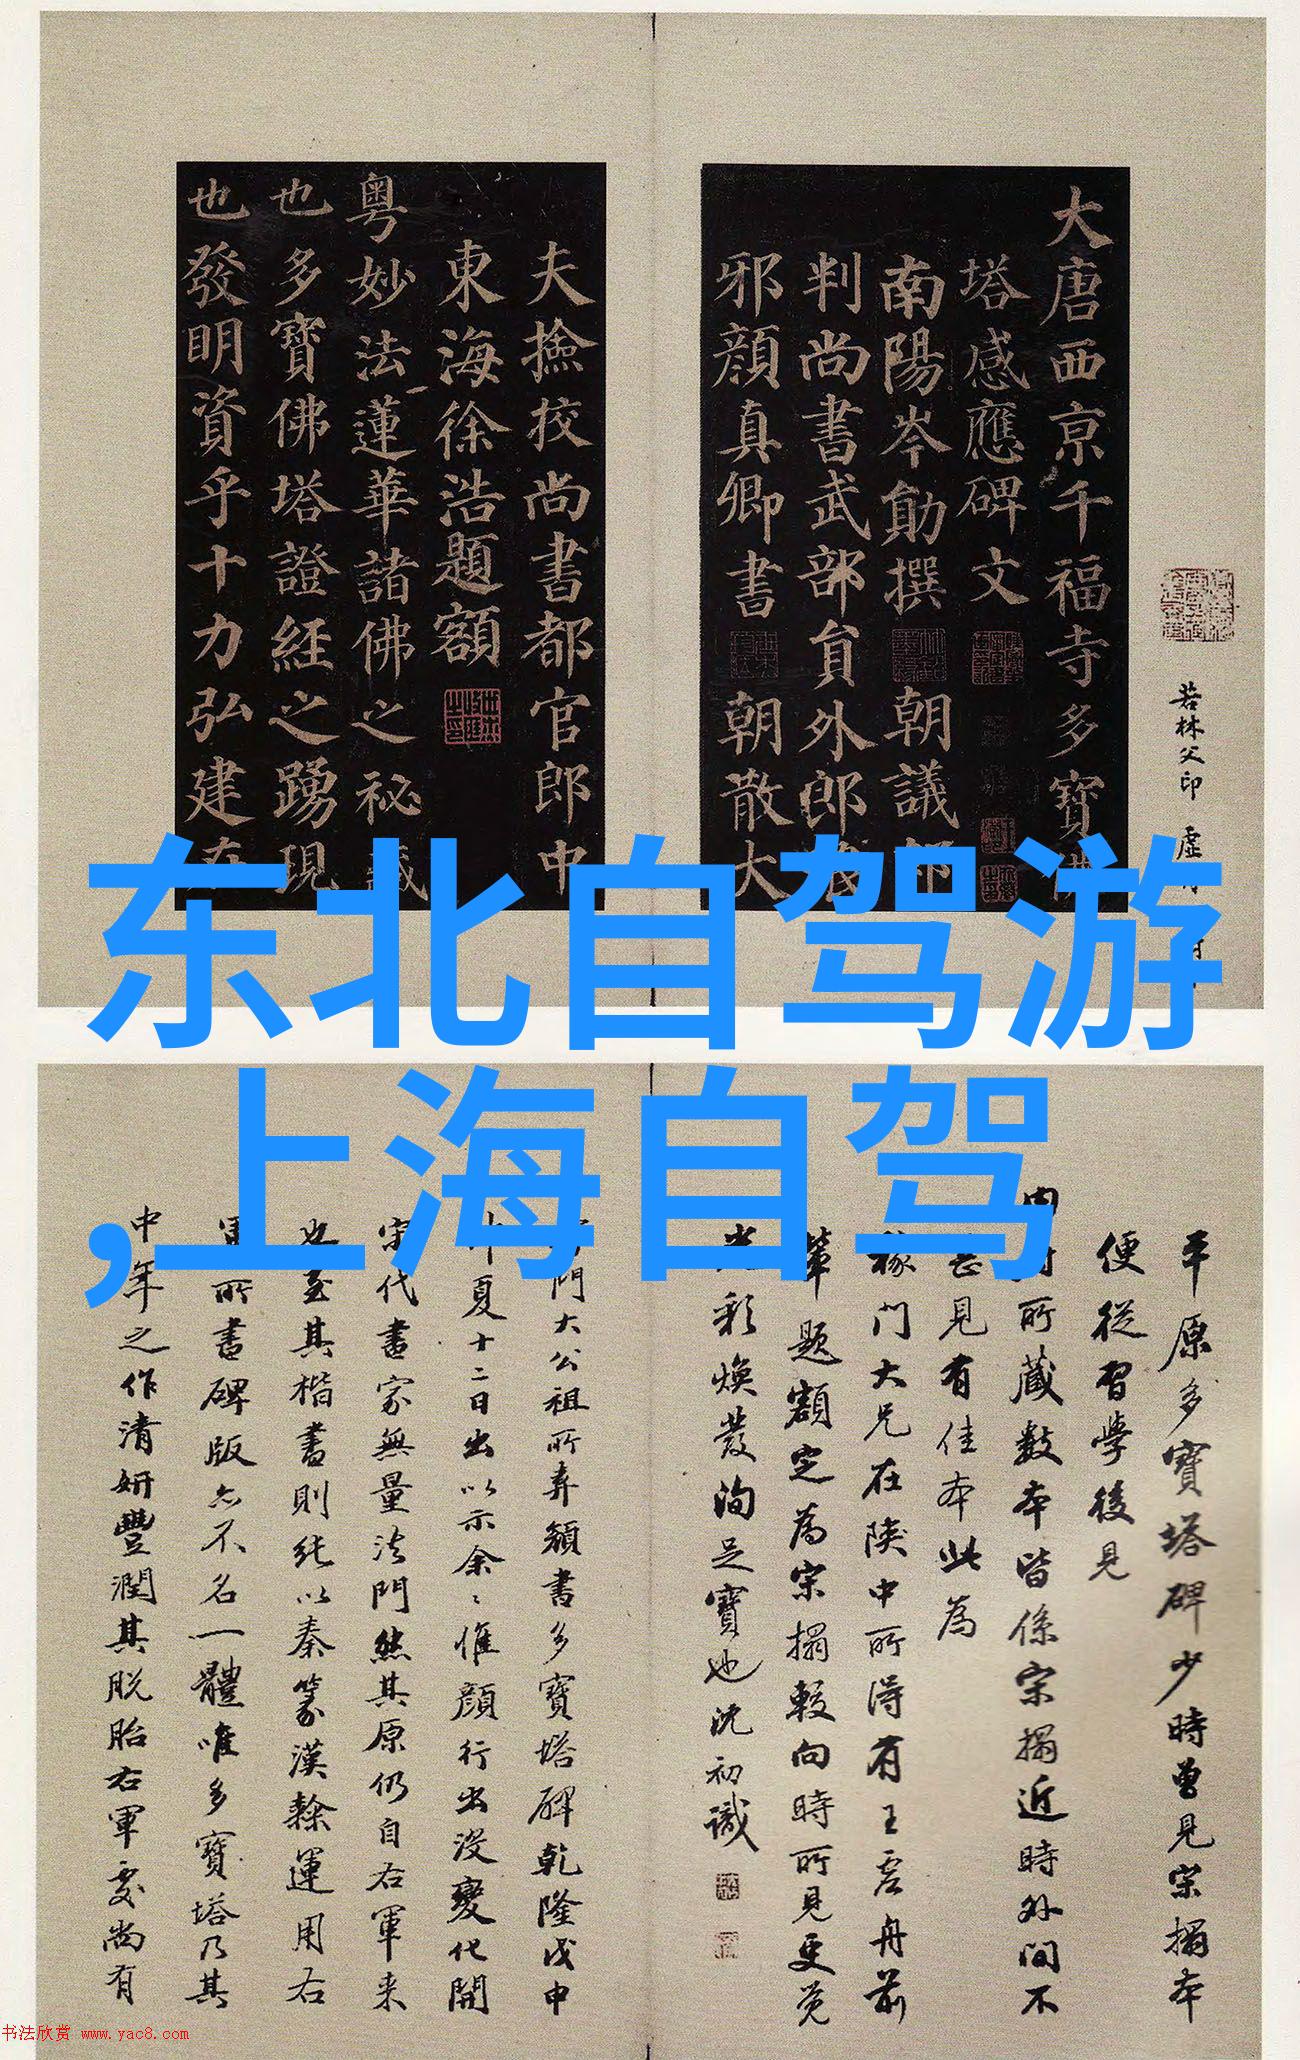 大唐西京千福寺多寶佛
塔感應碑文
南陽岑勛撰 朝議郎
判尚書武部員外郎
邪顏真卿書 朝散大
夫撿挍尚書都官郎中
東海徐浩題額
粵妙法蓮華諸佛之祕藏
也多寶佛塔證經之踴現
也發明資乎十力弘建在
若林父印
虛
东北自驾游
,上海自驾
平原多寶塔碑少時曾見宋搨本
便從習學後見
所藏數本皆係宋搨近時外間不
甚見有佳本此為
稼門大兄在陝中所得有王虛舟前
輩題額定為宋搨較向時所見更覺
光彩煥發洵足寶也沈初識
門大公祖所弆顏書多寶塔碑乾隆戊申
夏十二日出以示余惟顏行出沒變化開
宋代書家無量法門然其原仍自右軍来
也至其楷書則純以秦篆漢隸運用右
軍所書碑版亦不名一體唯多寶塔乃其
中年之作清妍豐潤其脫胎右軍處尚有
书法欣赏 www.yac8.com